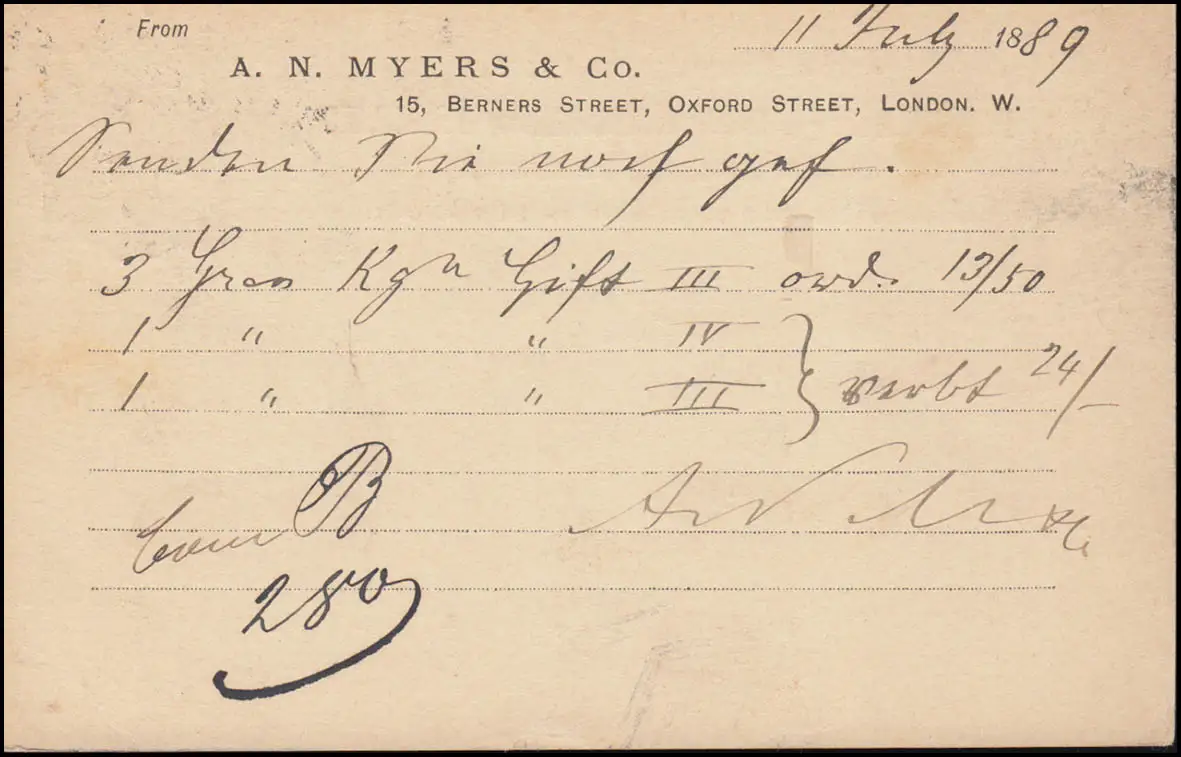 From
11 July 1889
A. N. MYERS & Co.
15, BERNERS STREET, OXFORD STREET, LONDON. W.
Senden Sie noch gef.
3 Gros Kgn Gift III ord. 13/50
1 " " IV
1 " " III } verbt 24/-
B
280